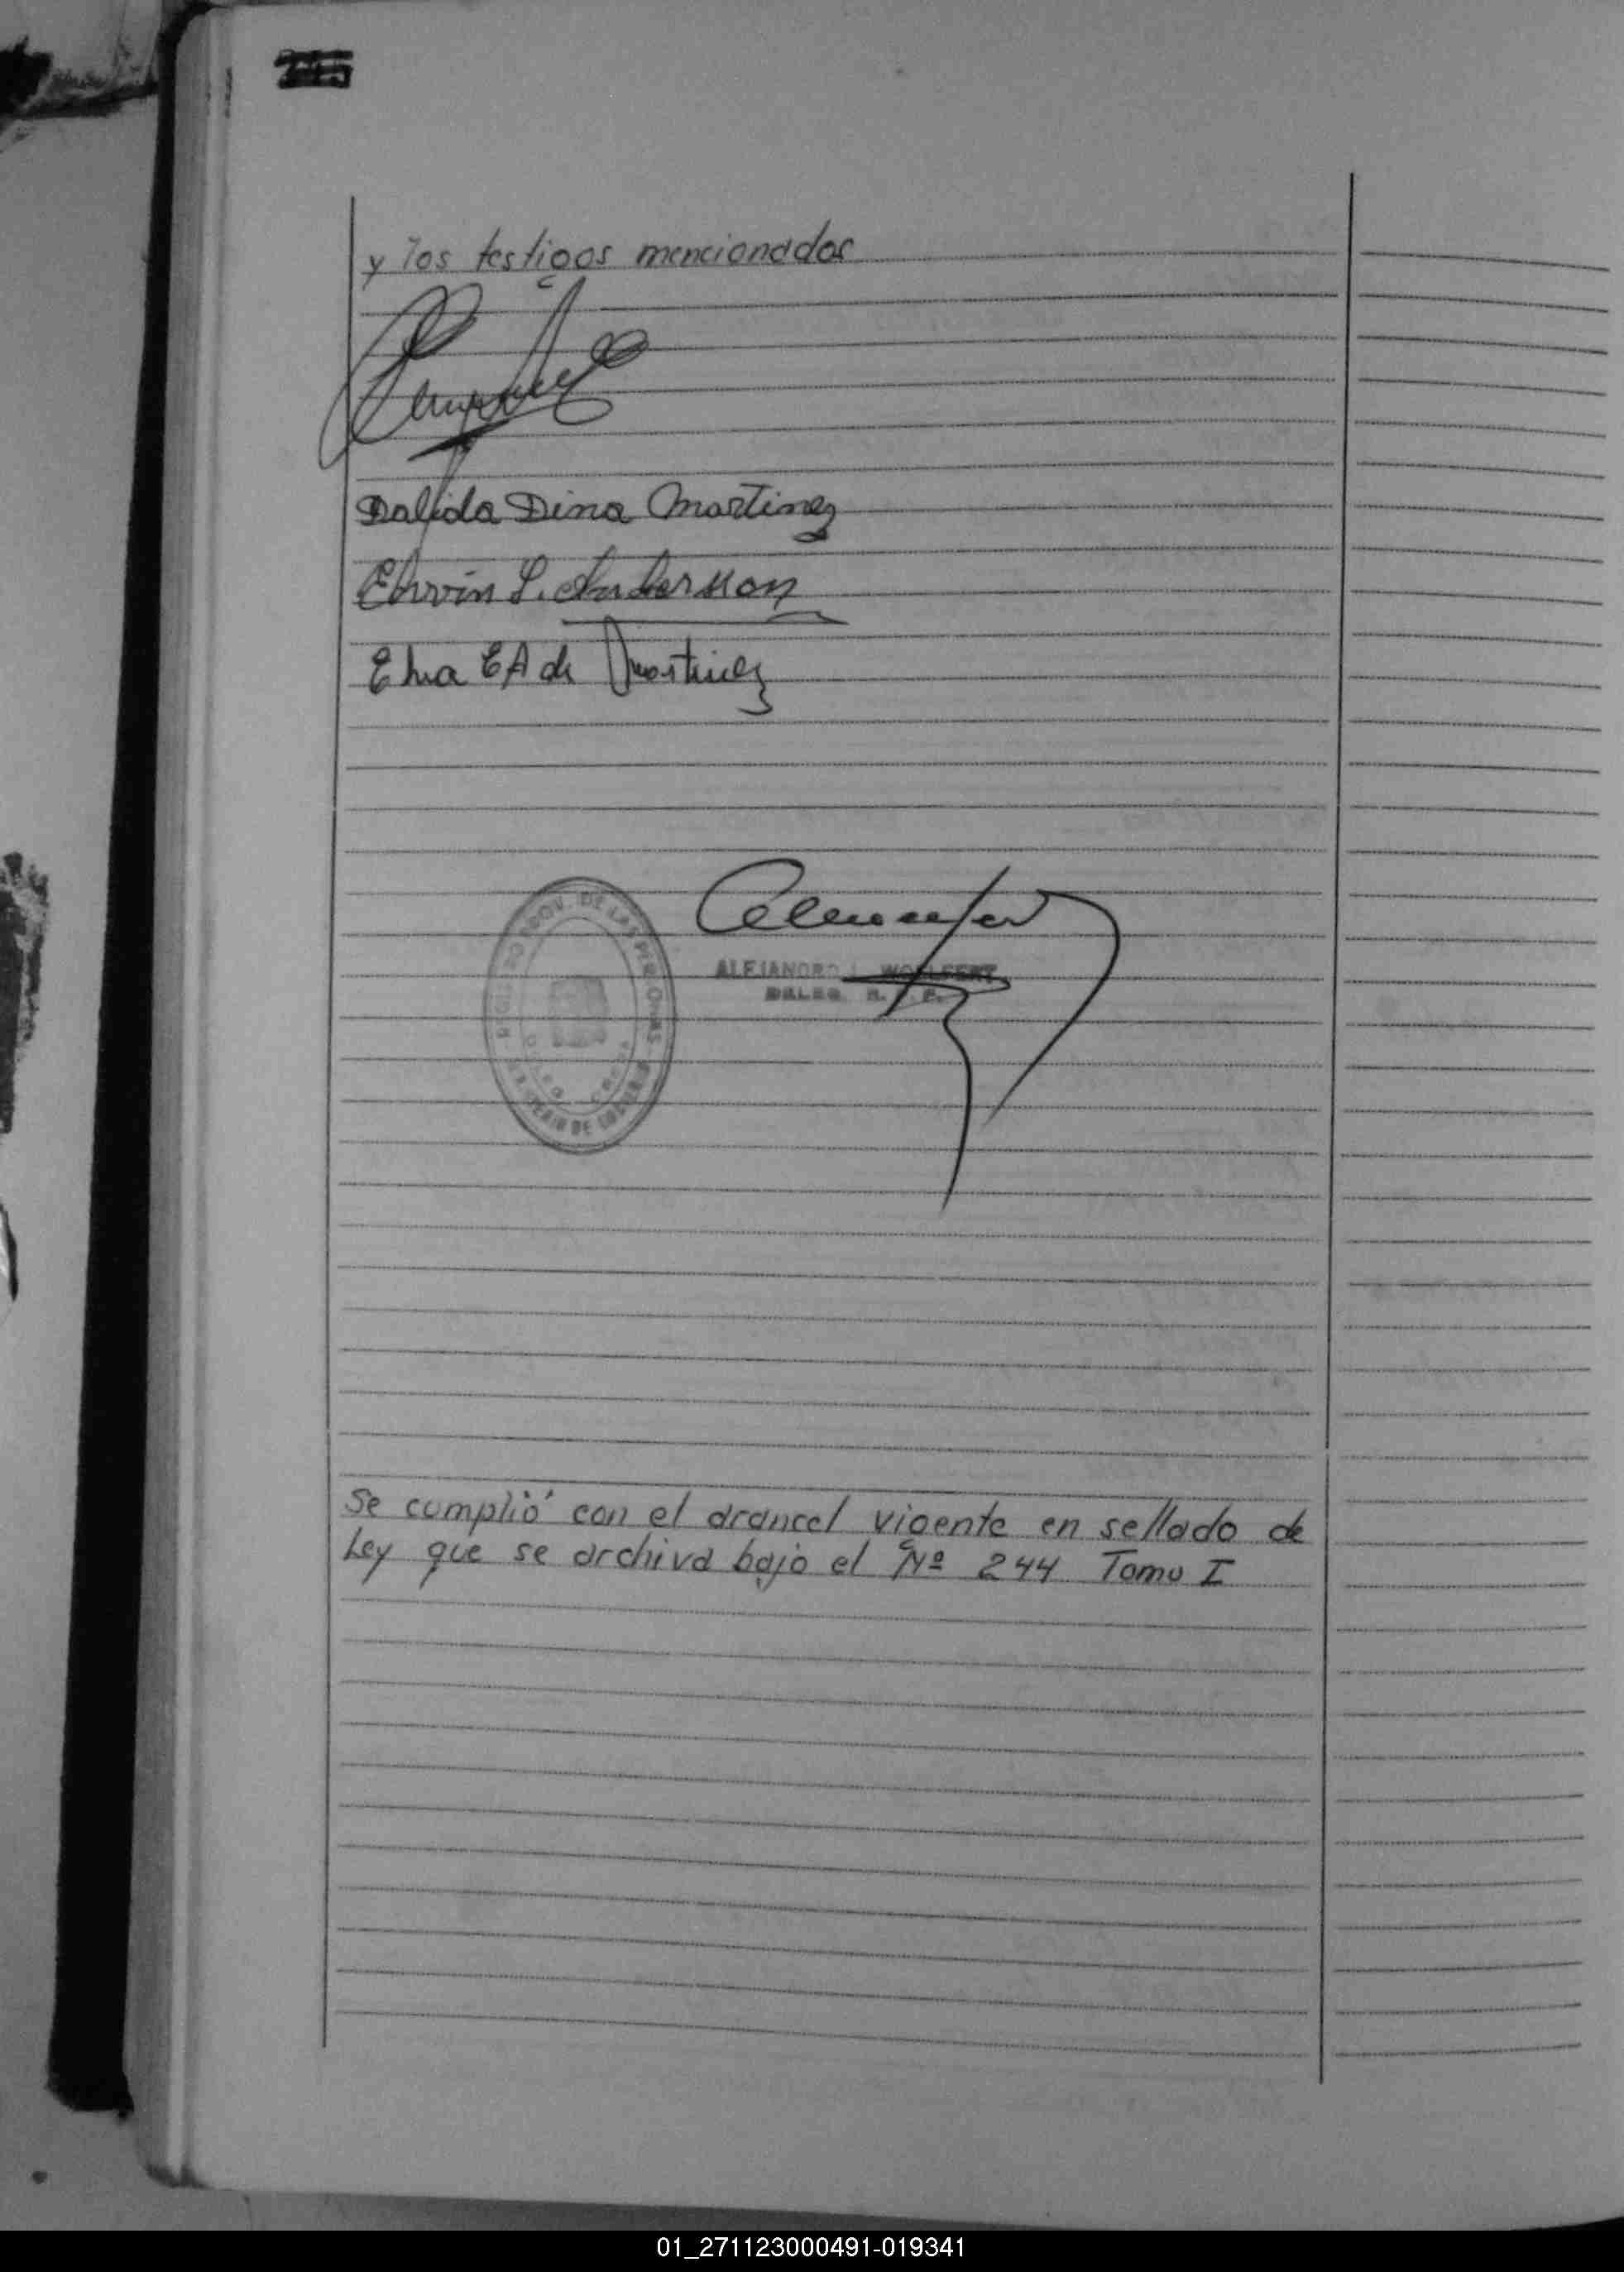 y los testigos mencionados
Dalida Dina Martinez
Edwin L. Anderson
Elva E A de Martinez
PROV. DE LAS PERSONAS
ALEJANDRO L. WOLFERT
DELEG. R.
Se cumplió con el arancel vigente en sellado de
Ley que se archiva bajo el Nº 244 Tomo I
01_271123000491-019341